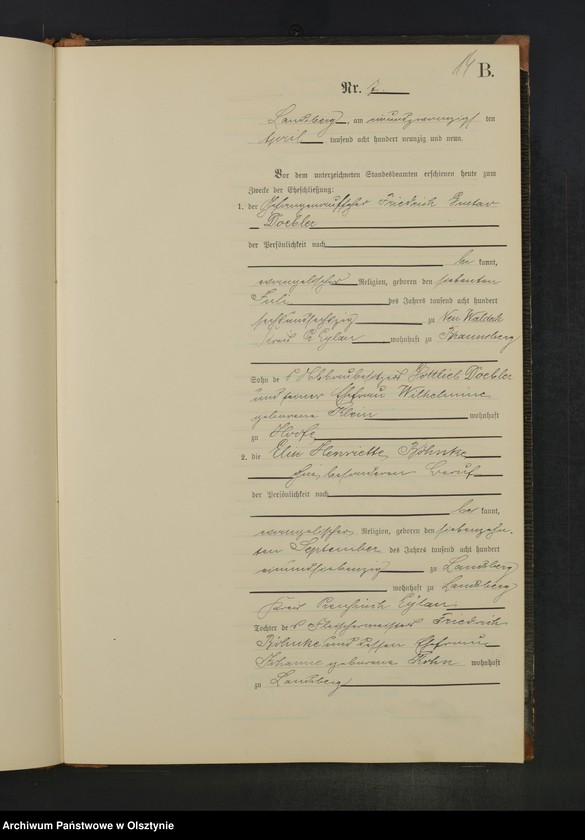 14 B.
Nr. 7.
Landsberg, am neunundzwanzigsten ten
April tausend acht hundert neunzig und neun.
Vor dem unterzeichneten Standesbeamten erschienen heute zum
Zwecke der Eheschließung:
1. der Gefangenaufseher Friedrich Gustav
Doebler
der Persönlichkeit nach
be kannt,
evangelischer Religion, geboren den siebenten
Juli des Jahrs tausend acht hundert
sechsundsechzig zu Neu Waldeck
Kreis Pr Eylau wohnhaft zu Braunsberg
Sohn des Gottlieb Doebler
und seiner Ehefrau Wilhelmine
geborene Klein wohnhaft
zu Hoofe
2. die Elise Henriette Böhnke
ohne besonderen Beruf
der Persönlichkeit nach
be kannt,
evangelischer Religion, geboren den siebenzehn-
ten September des Jahrs tausend acht hundert
einundsiebenzig zu Landsberg
wohnhaft zu Landsberg
Kreis Preußisch Eylau
Tochter des Fleischermeisters Friedrich
Böhnke und dessen Ehefrau
Johanne geborene wohnhaft
zu Landsberg
Archiwum Państwowe w Olsztynie